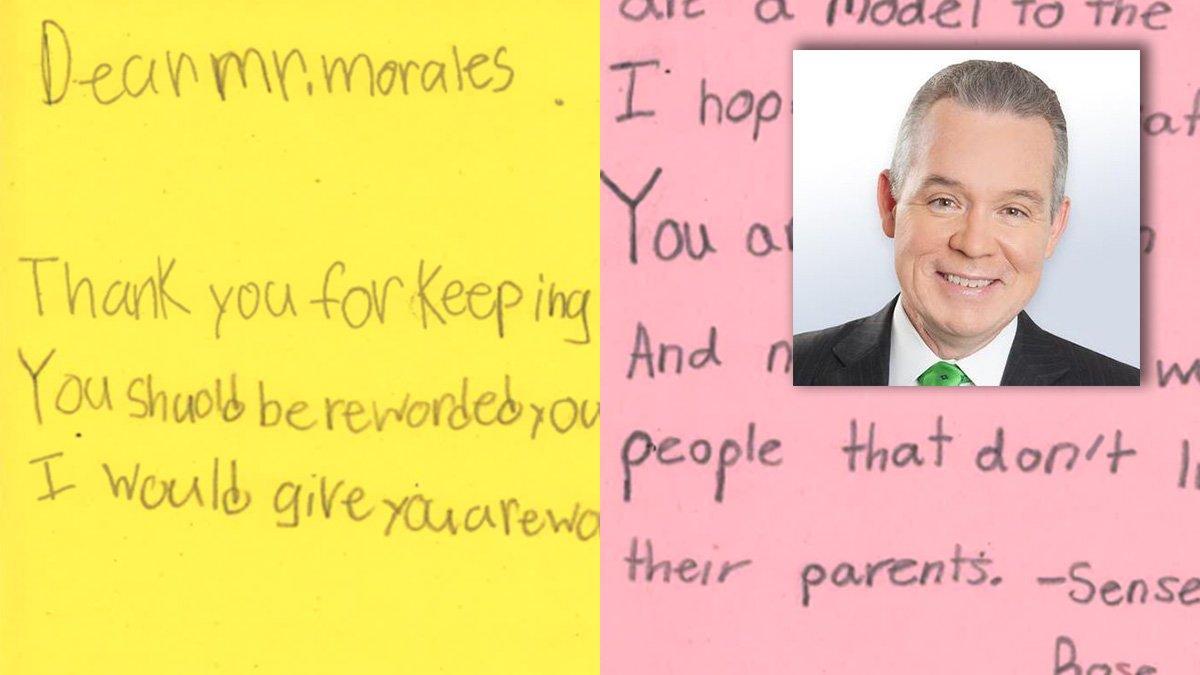 Dear mr. morales
Thank you for Keeping
You shuold be reworded you
I would give you a rewo
are a Model to the
I hop
You ar
And n
people that don't li
their parents. -Sense
Rose